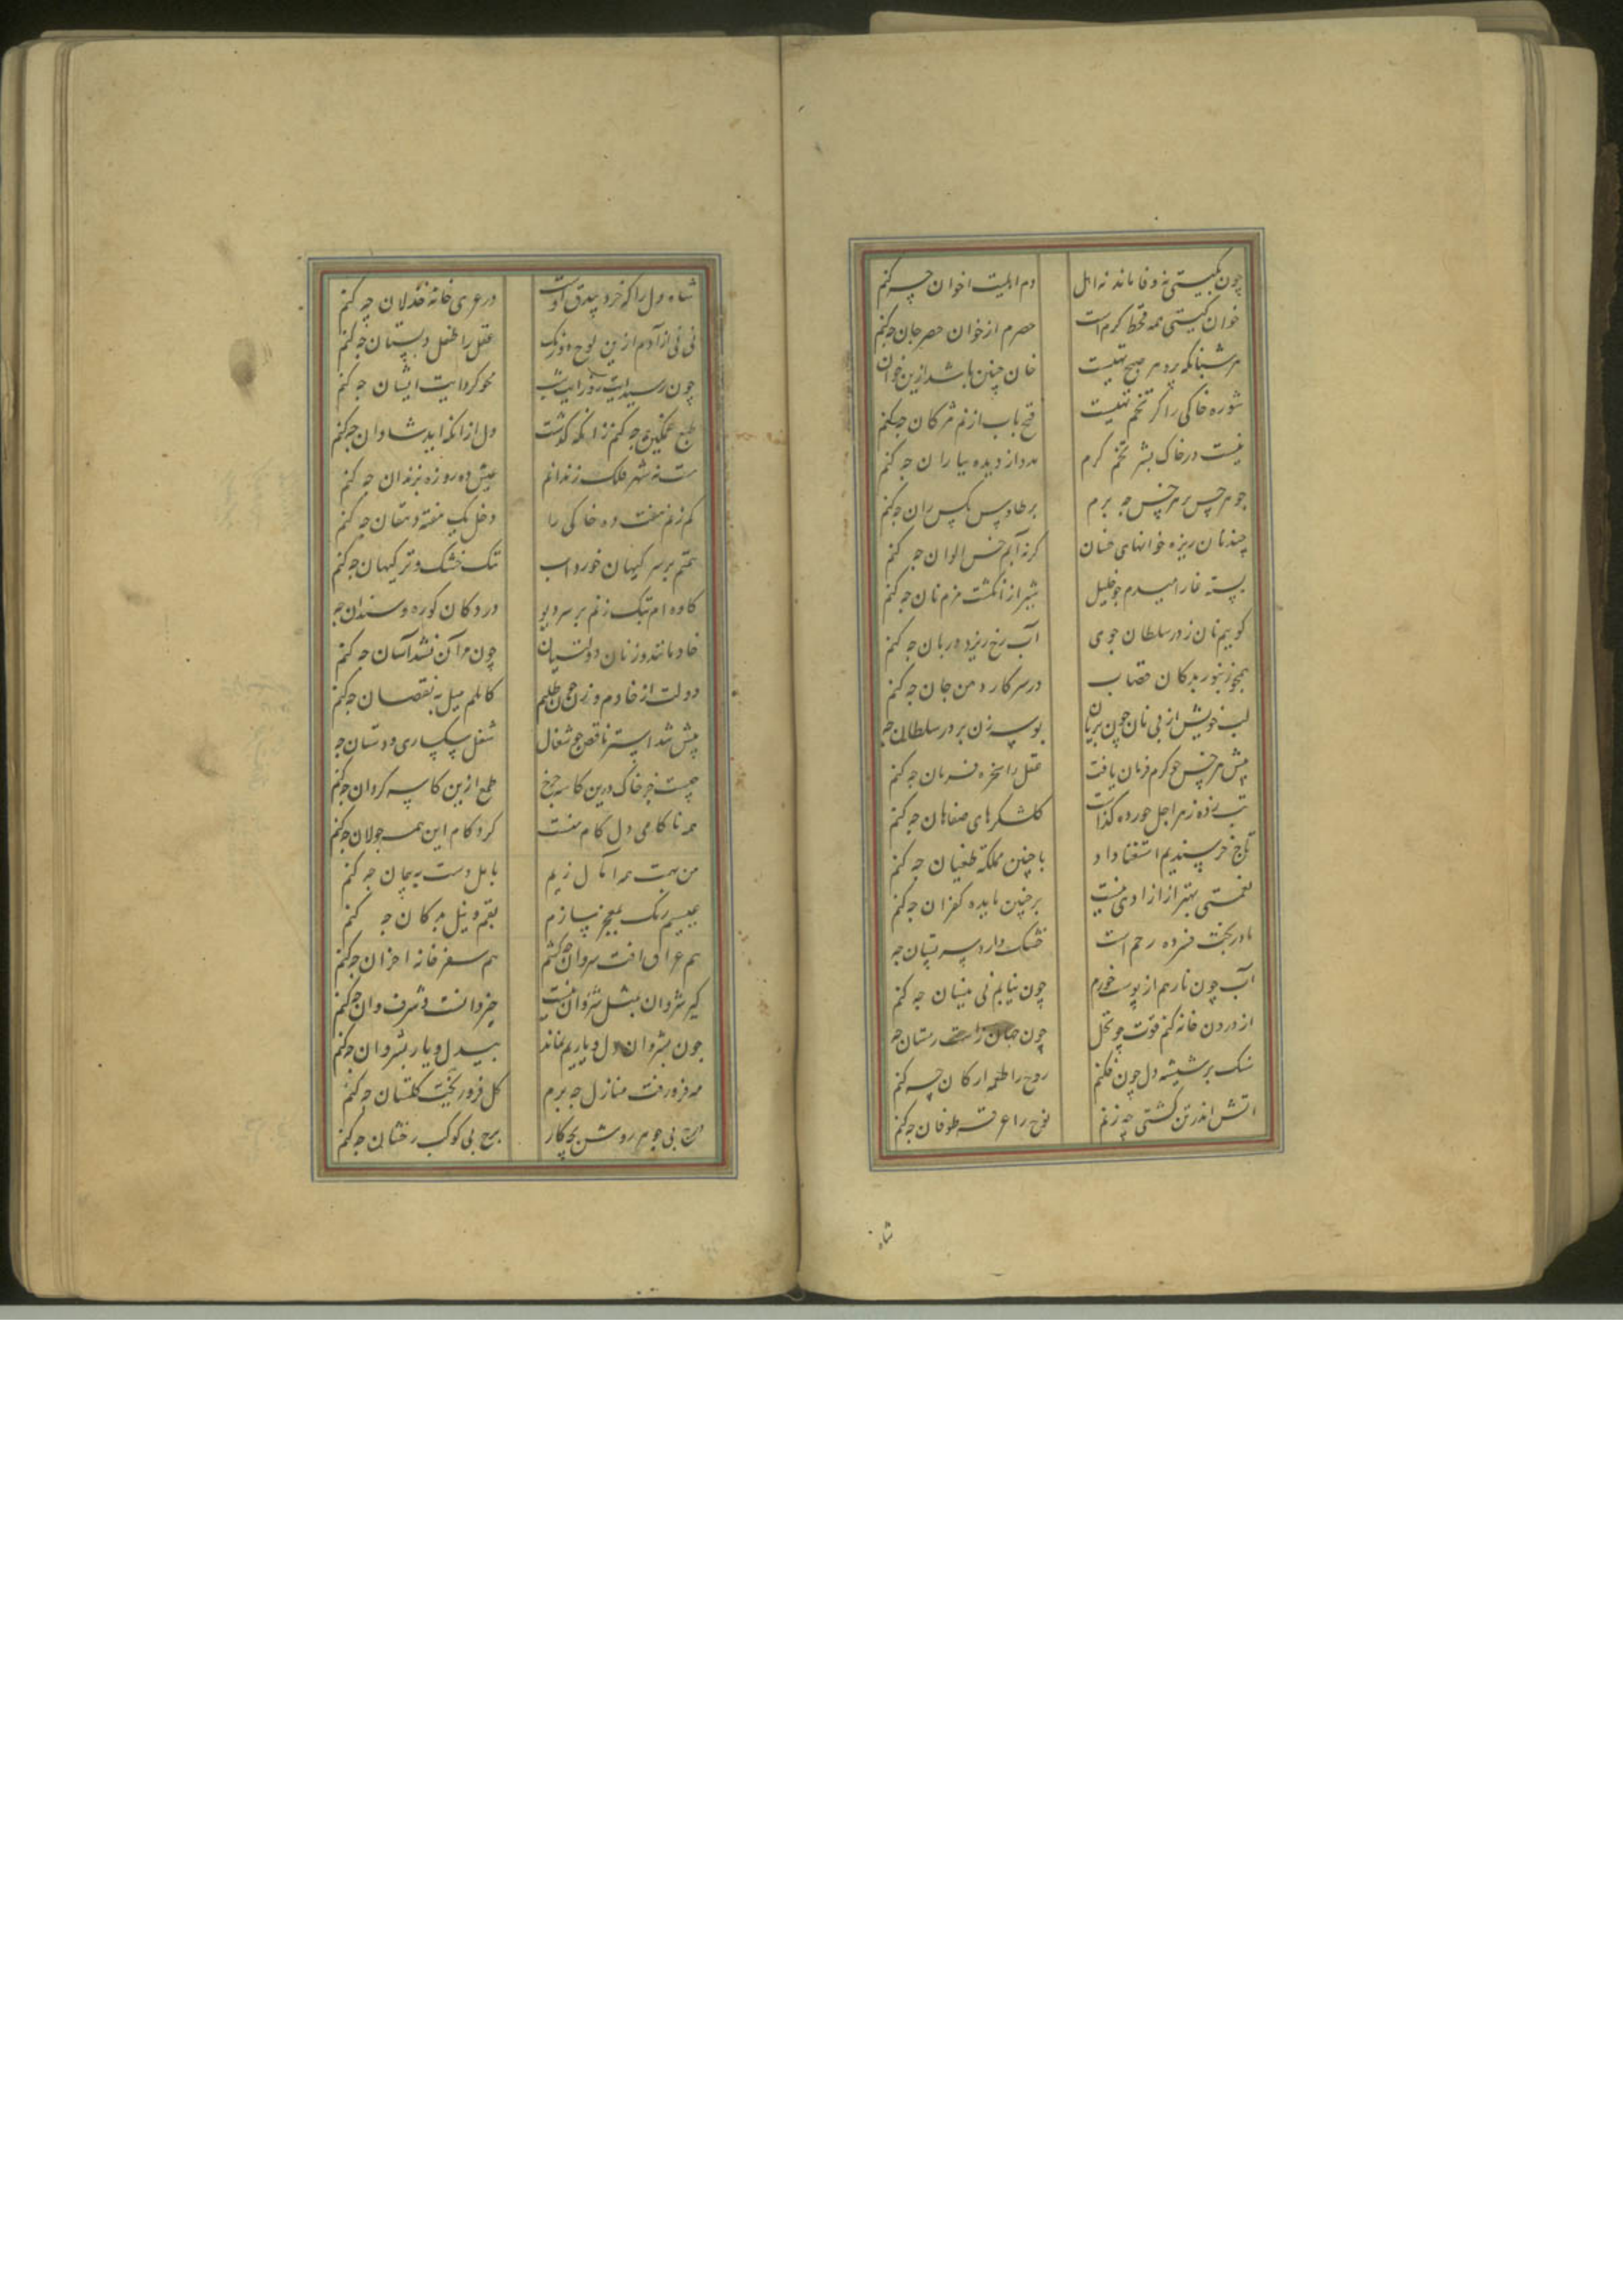 چون بگیتی نه وفا ماند نه اهل دم اهلیت اخوان چه کنم
خوان گیتی همه قحط کرم است حصرم از خوان حصر جان چه کنم
هر شبانگه پر و هر صبح تهیست خان چنین باشد ازین خوان
شوره خاکی را کز تخم تهیست فتح باب از نم مژگان چکنم
نیست در خاک بشر تخم کرم مدد از دیده بباران چه کنم
جو هر خس بر هر خس چه برم بر طاوس مکس ران چه کنم
چند نان ریزه خوانهای خسان کرنه آبم خس الوان چه کنم
بسته غارامیدم چو خلیل شیر از انگشت مزم نان چه کنم
گویم نان ز در سلطان جوی آب رخ ریزد در بان چه کنم
همچو زنبور بدکان قصاب در سر کارد من جان چه کنم
لب خویش از پی نان چون پریان بوسه زن بر در سلطان چه
پیش هر خس چو کرم فرمان یافت عقل را سخره فرمان چه کنم
تب زده زهر اجل خورده گذشت گلشکرهای صفاهان چه کنم
تاج خرسندیم استغنا داد با چنین مملکه طغیان چه کنم
نعمتی بهتر از ازادی نیست بر چنین مایده کفران چه کنم
مادر بخت فسرده رحم است خشک دارد سر پستان چه
آب چون نارهم از پوست خورم چون نیابم نی نیسان چه کنم
از درون خانه کنم قوت چو نحل چون جهان راست رستان چه
سنک بر شیشه دل چون فکنم روح را طعمه ارکان چه کنم
اتش اندر تن کشتی چه زنم نوح را غرقه طوفان چه کنم
شاه
شاه دل را که خرد بیدق اوست در عری خانه خذلان چه کنم
نی نی از آدم ازین لوح دو رنک عقل را طفل دبستان چه کنم
چون رسد ایت روز ایت شب محو کرد ایت ایشان چه کنم
طبع غمگین چه کنم زانکه گذشت دل ازانکه ابد شادان چه کنم
ست نه شهر فلک زندانم عیش ده روزه بزندان چه کنم
کم زنم هفت ده خاکی را دخل یک هفته دهقان چه کنم
همتم بر سر کیهان خورد اب تنک خشک و تر کیهان چه کنم
کاوه ام پتک زنم بر سر دیو در دکان کوره و سندان چه
خادمانند و زنان دولتیان چون مرا آن نشد آسان چه کنم
دولت از خادم و زن چون طلبم کاملم میل به نقصان چه کنم
پیش شد استر ناقص چو شغال شغل سکساری و دستان چه
چیست جز خاک درین کاسه چرخ طمع ازین کاسه گردان چه کنم
همه ناکامی دل کام منست گرد کام این همه جولان چه کنم
من بهمت همه امال زیم با امل دست به پیمان چه کنم
عیسیم رنک بمعجز سازم بقم و نیل بدکان چه کنم
هم عراق افت شروان چه کشم هم سفر خانه احزان چه کنم
گیر شروان بمثل شروان نیست خیروانست و شرف وان چه کنم
چون بشروان دل و یاریم نماند بیدل و یار بشروان چه کنم
مه فرو رفت منازل چه برم گل فرو ریخت گلستان چه کنم
درج بی جوهر روشن بچکار برج بی کوکب رخشان چه کنم